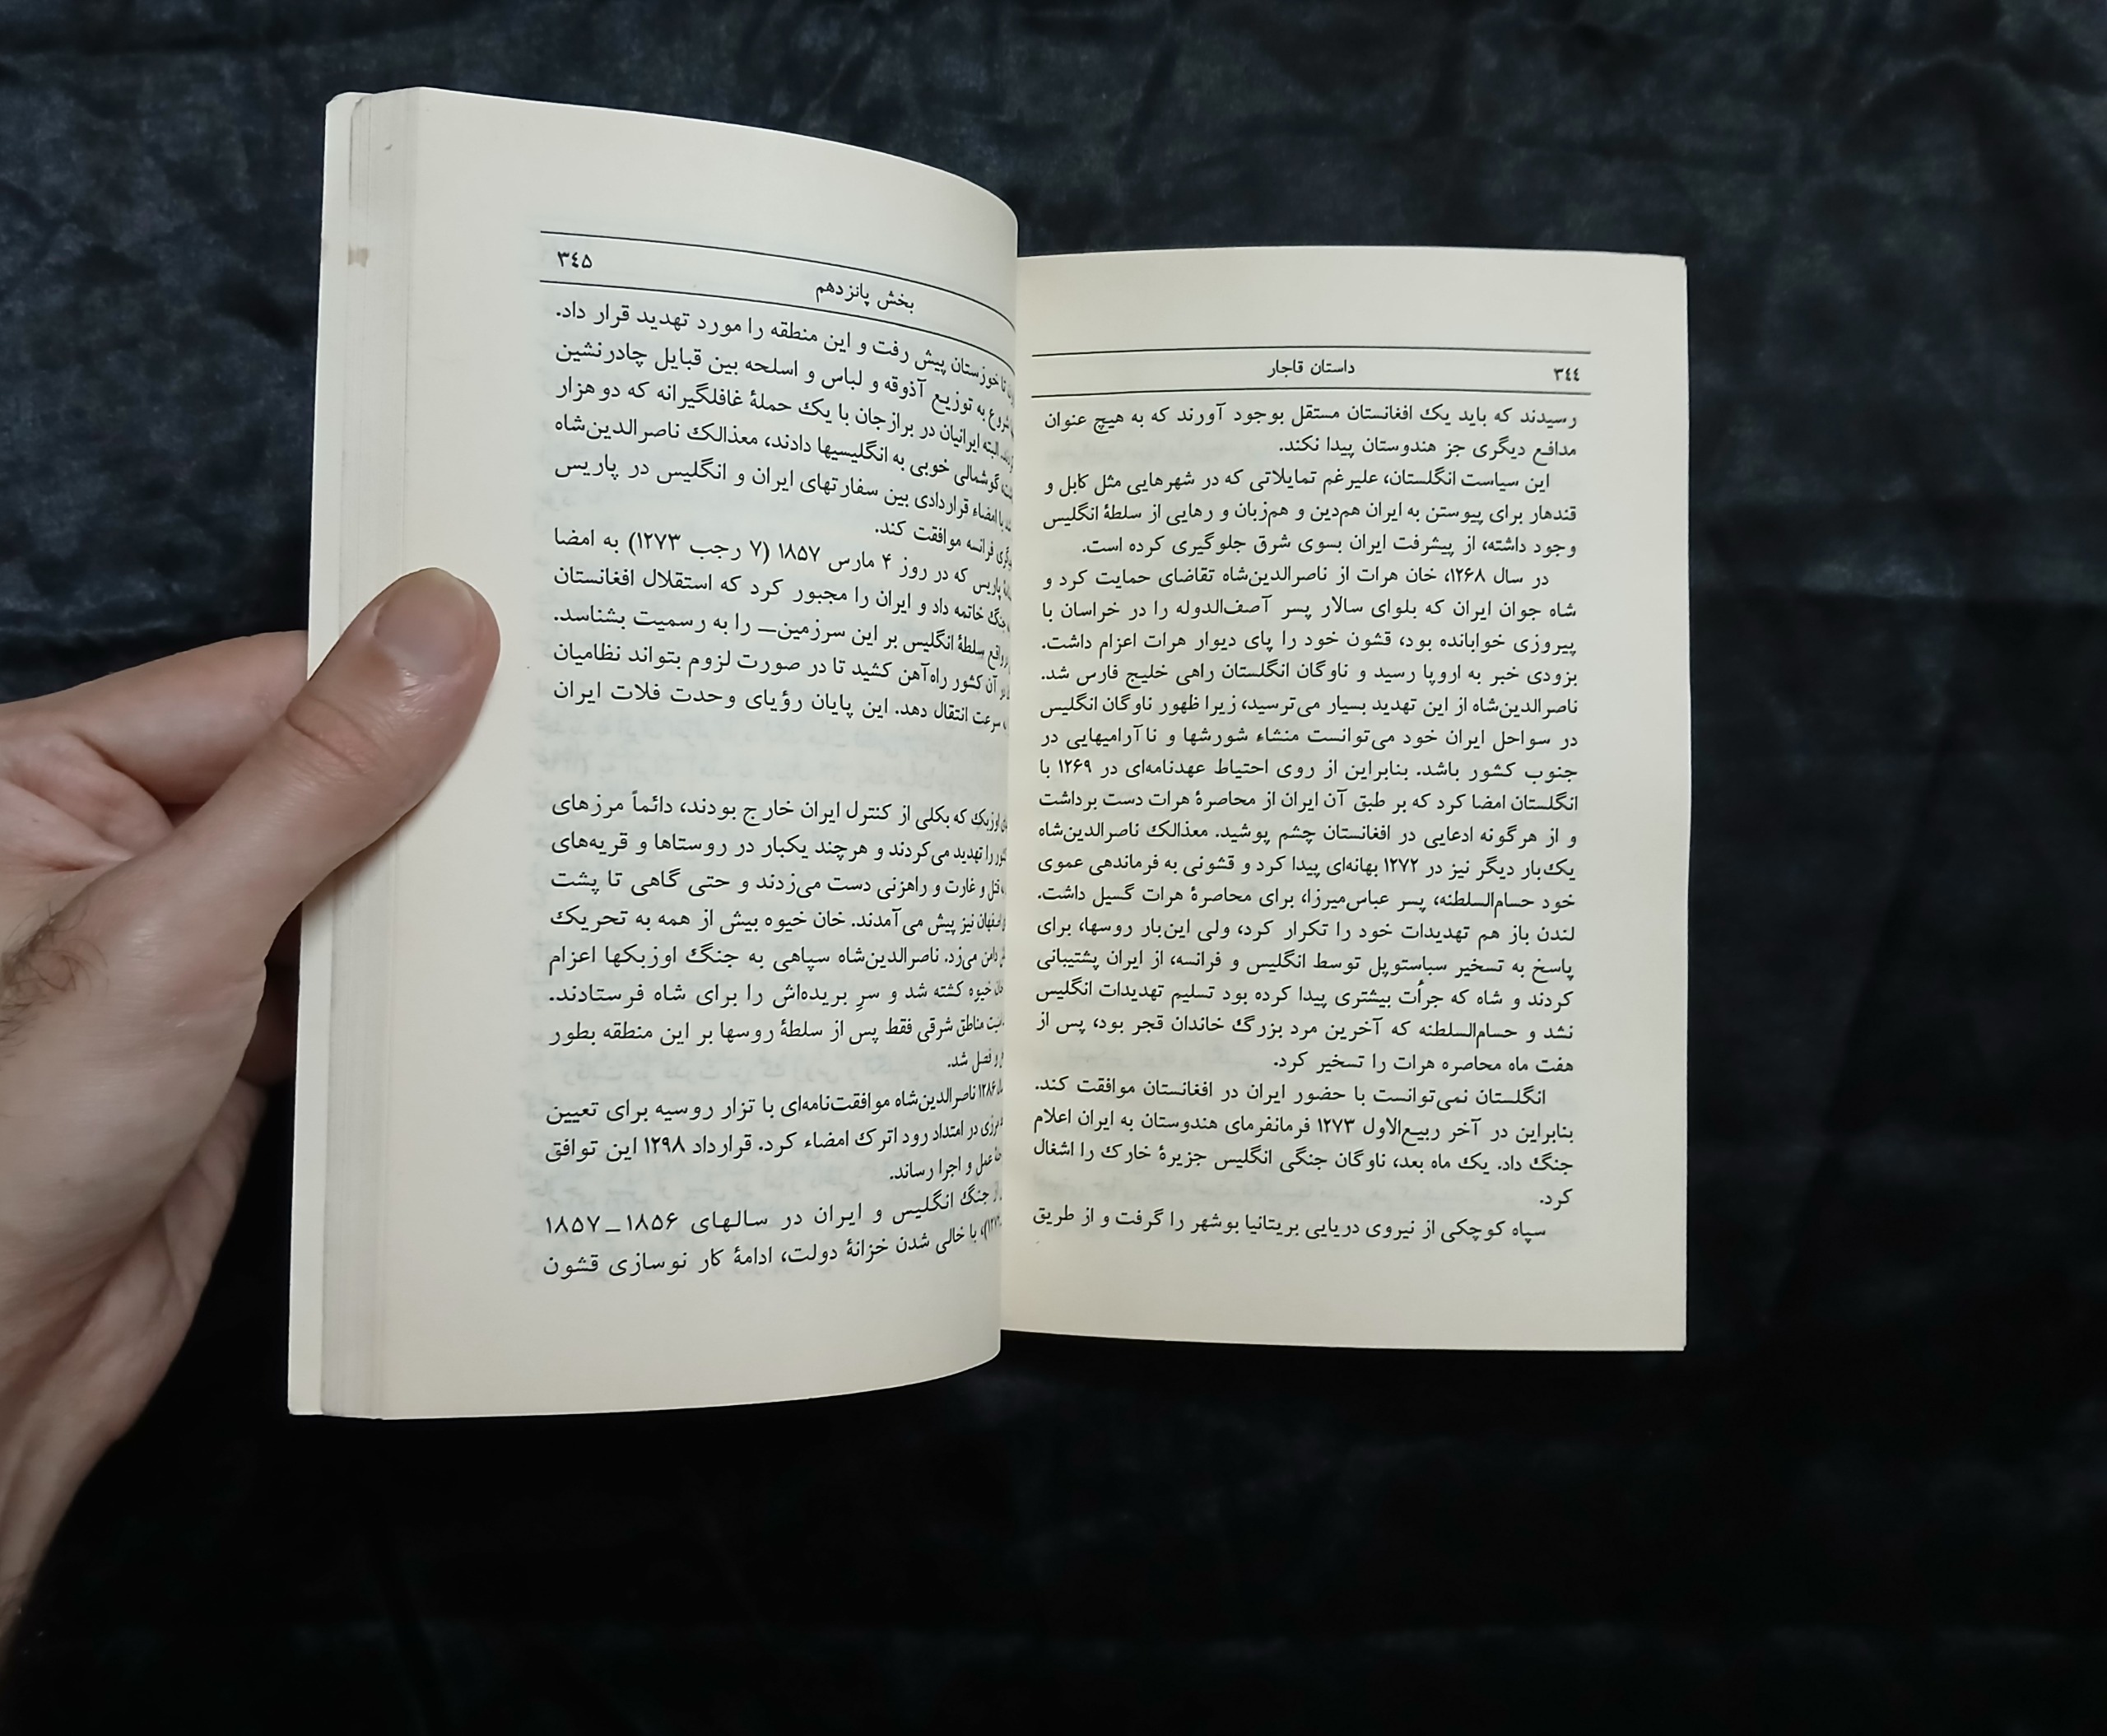 داستان قاجار
٣٤٤
رسیدند که باید یک افغانستان مستقل بوجود آورند که به هیچ عنوان
مدافع دیگری جز هندوستان پیدا نکند.
این سیاست انگلستان، علیرغم تمایلاتی که در شهرهایی مثل کابل و
قندهار برای پیوستن به ایران هم‌دین و هم‌زبان و رهایی از سلطهٔ انگلیس
وجود داشته، از پیشرفت ایران بسوی شرق جلوگیری کرده است.
در سال ۱۲۶۸، خان هرات از ناصرالدین‌شاه تقاضای حمایت کرد و
شاه جوان ایران که بلوای سالار پسر آصف‌الدوله را در خراسان با
پیروزی خوابانده بود، قشون خود را پای دیوار هرات اعزام داشت.
بزودی خبر به اروپا رسید و ناوگان انگلستان راهی خلیج فارس شد.
ناصرالدین‌شاه از این تهدید بسیار می‌ترسید، زیرا ظهور ناوگان انگلیس
در سواحل ایران خود می‌توانست منشاء شورشها و ناآرامیهایی در
جنوب کشور باشد. بنابراین از روی احتیاط عهدنامه‌ای در ۱۲۶۹ با
انگلستان امضا کرد که بر طبق آن ایران از محاصرهٔ هرات دست برداشت
و از هرگونه ادعایی در افغانستان چشم پوشید. معذالک ناصرالدین‌شاه
یک‌بار دیگر نیز در ۱۲۷۲ بهانه‌ای پیدا کرد و قشونی به فرماندهی عموی
خود حسام‌السلطنه، پسر عباس‌میرزا، برای محاصرهٔ هرات گسیل داشت.
لندن باز هم تهدیدات خود را تکرار کرد، ولی این‌بار روسها، برای
پاسخ به تسخیر سباستوپل توسط انگلیس و فرانسه، از ایران پشتیبانی
کردند و شاه که جرأت بیشتری پیدا کرده بود تسلیم تهدیدات انگلیس
نشد و حسام‌السلطنه که آخرین مرد بزرگ خاندان قجر بود، پس از
هفت ماه محاصره هرات را تسخیر کرد.
انگلستان نمی‌توانست با حضور ایران در افغانستان موافقت کند.
بنابراین در آخر ربیع‌الاول ۱۲۷۳ فرمانفرمای هندوستان به ایران اعلام
جنگ داد. یک ماه بعد، ناوگان جنگی انگلیس جزیرهٔ خارک را اشغال
کرد.
سپاه کوچکی از نیروی دریایی بریتانیا بوشهر را گرفت و از طریق
بخش پانزدهم
٣٤٥
تا خوزستان پیش رفت و این منطقه را مورد تهدید قرار داد.
شروع به توزیع آذوقه و لباس و اسلحه بین قبایل چادرنشین
البته ایرانیان در برازجان با یک حملهٔ غافلگیرانه که دو هزار
گوشمالی خوبی به انگلیسیها دادند، معذالک ناصرالدین‌شاه
با امضاء قراردادی بین سفارتهای ایران و انگلیس در پاریس
فرانسه موافقت کند.
پاریس که در روز ۴ مارس ۱۸۵۷ (۷ رجب ۱۲۷۳) به امضا
جنگ خاتمه داد و ایران را مجبور کرد که استقلال افغانستان
سلطهٔ انگلیس بر این سرزمین— را به رسمیت بشناسد.
آن کشور راه‌آهن کشید تا در صورت لزوم بتواند نظامیان
سرعت انتقال دهد. این پایان رؤیای وحدت فلات ایران
اوزبک که بکلی از کنترل ایران خارج بودند، دائماً مرزهای
را تهدید می‌کردند و هرچند یکبار در روستاها و قریه‌های
قتل و غارت و راهزنی دست می‌زدند و حتی گاهی تا پشت
اصفهان نیز پیش می‌آمدند. خان خیوه بیش از همه به تحریک
دامن می‌زد. ناصرالدین‌شاه سپاهی به جنگ اوزبکها اعزام
خیوه کشته شد و سرِ بریده‌اش را برای شاه فرستادند.
مناطق شرقی فقط پس از سلطهٔ روسها بر این منطقه بطور
و فصل شد.
۱۲۸۶ ناصرالدین‌شاه موافقت‌نامه‌ای با تزار روسیه برای تعیین
در امتداد رود اترک امضاء کرد. قرارداد ۱۲۹۸ این توافق
عمل و اجرا رساند.
جنگ انگلیس و ایران در سالهای ۱۸۵۶—۱۸۵۷
با خالی شدن خزانهٔ دولت، ادامهٔ کار نوسازی قشون